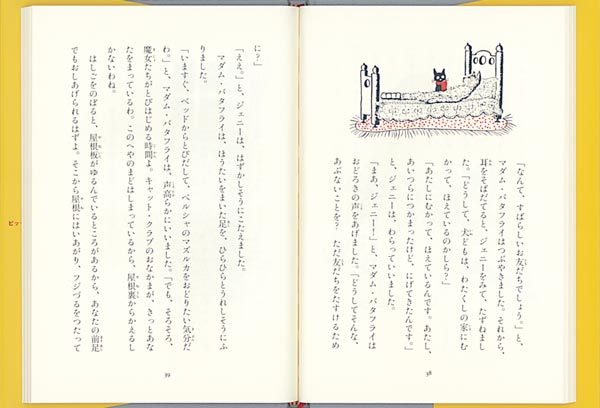 「なんて、すばらしいお友だちでしょう。」と、
マダム・バタフライはつぶやきました。それから、
耳をそばだてると、ジェニーをみて、たずねまし
た。「どうして、犬どもは、わたくしの家にむ
かって、ほえているのかしら？」
「あたしにむかって、ほえているんです。あたし、
あいつらにつかまったけど、にげてきたんです。」
と、ジェニーは、わらっていいました。
「まあ、ジェニー！」と、マダム・バタフライは
おどろきの声をあげました。「どうしてそんな、
あぶないことを？　ただ友だちをたすけるため
38
に？」
「ええ。」と、ジェニーは、はずかしそうにこたえました。
マダム・バタフライは、ほうたいをまいた足を、ひらひらとうれしそうにふ
りました。
「いますぐ、ベッドからとびだして、ペルシャのマズルカをおどりたい気分だ
わ。」と、マダム・バタフライは、声高らかにいいました。「でも、そろそろ、
魔女たちがとびはじめる時間よ。キャット・クラブのおなかまが、きっとあな
たをまっているわ。このへやのまどはしまっているから、屋根裏からかえるし
かないわね。
はしごをのぼると、屋根板がゆるんでいるところがあるから、あなたの前足
でもおしあげられるはずよ。そこから屋根にはいあがり、フジづるをつたって
39